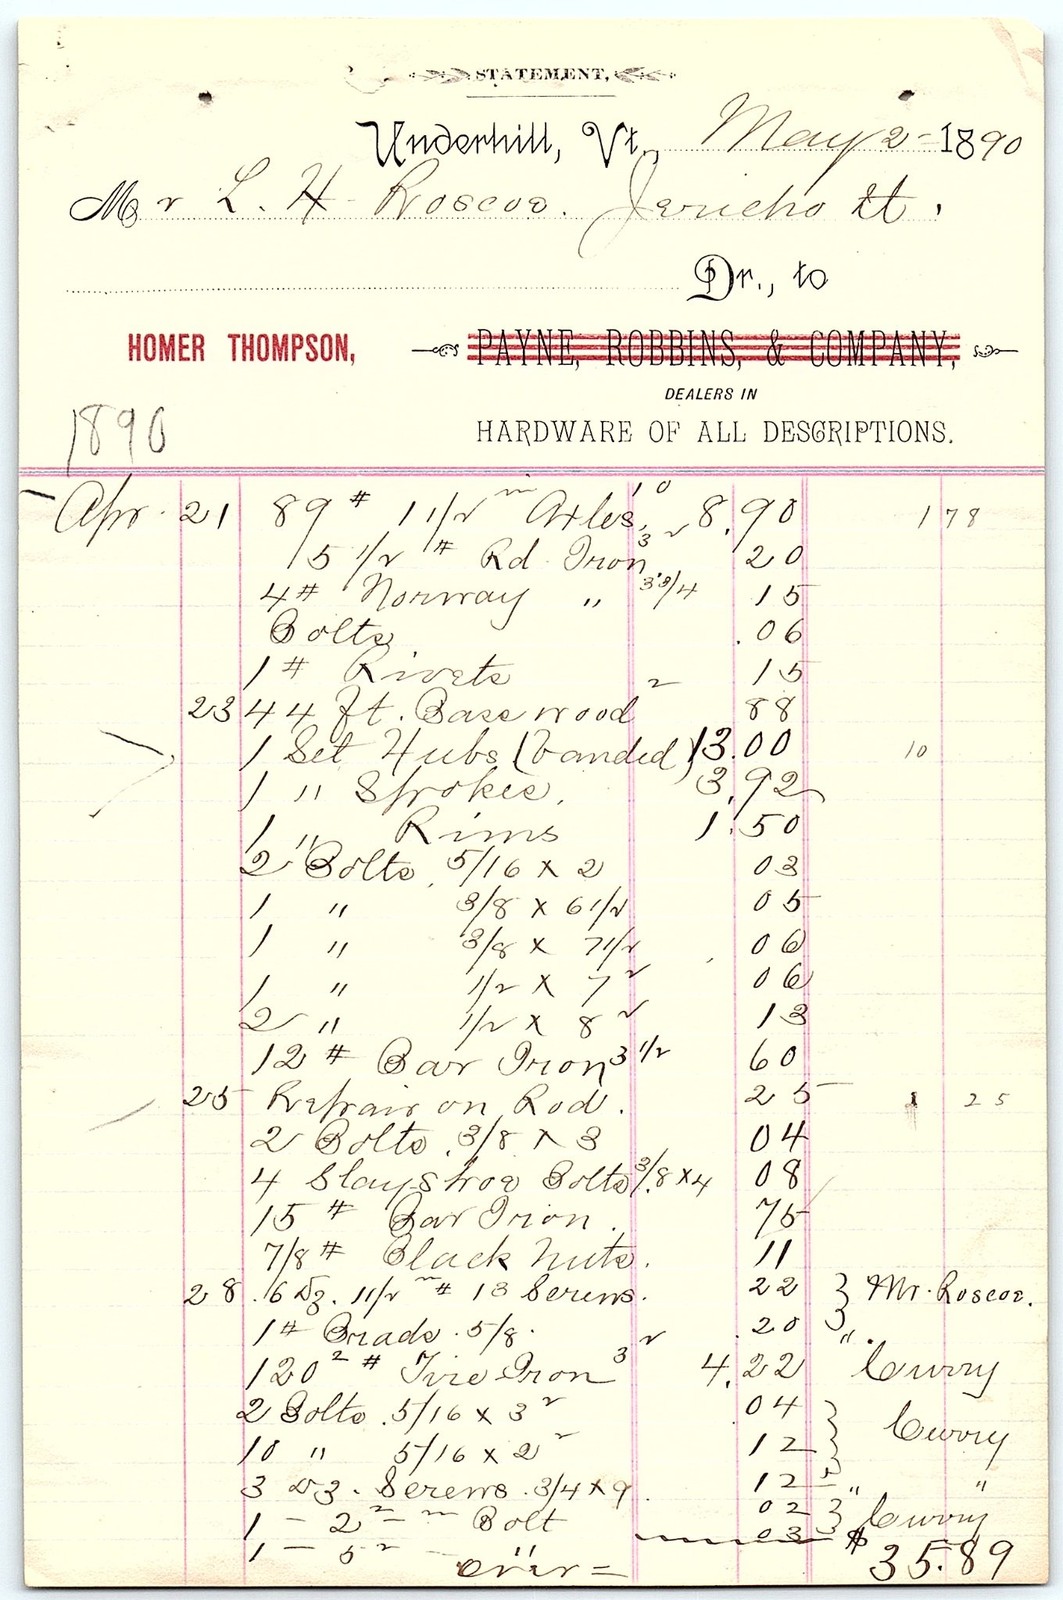 STATEMENT.
Underhill, Vt., May 2 1890
Mr L. H. Roscoe. Jericho Vt.
Dr., to
HOMER THOMPSON, PAYNE, ROBBINS, & COMPANY,
DEALERS IN
1890 HARDWARE OF ALL DESCRIPTIONS.
Apr. 21 89 # 1 1/2 Axles, 10 8.90 178
5 1/2 # Rd Iron 3 20
4 # Norway " 3 3/4 15
Bolts .06
1 # Rivets 15
23 44 ft. Basswood 2 88
1 Set Hubs (banded) 3.00 10
1 " Spokes, 3.92
1 " Rims 1.50
2 Bolts 5/16 x 2 03
1 " 3/8 x 6 1/2 05
1 " 3/8 x 7 1/2 06
1 " 1/2 x 7 06
2 " 1/2 x 8 13
12 # Bar Iron 3 1/2 60
25 Repair on Rod. 25 1 25
2 Bolts 3/8 x 3 04
4 Slayshoe Bolts 3/8 x 4 08
15 # Bar Iron. 75
7/8 # Black Nuts. 11
28 6 Dz. 1 1/2 # 13 Screws. 22 Mr. Roscoe.
1 # Brads. 5/8. .20 "
120 # Tire Iron 3 4.22 Curry
2 Bolts. 5/16 x 3 04 Curry
10 " 5/16 x 2 12
3 Dz. Screws. 3/4 x 9 12 " "
1 - 2 - Bolt 02 Curry
1 - 5 - " 03 $
over = 35.89